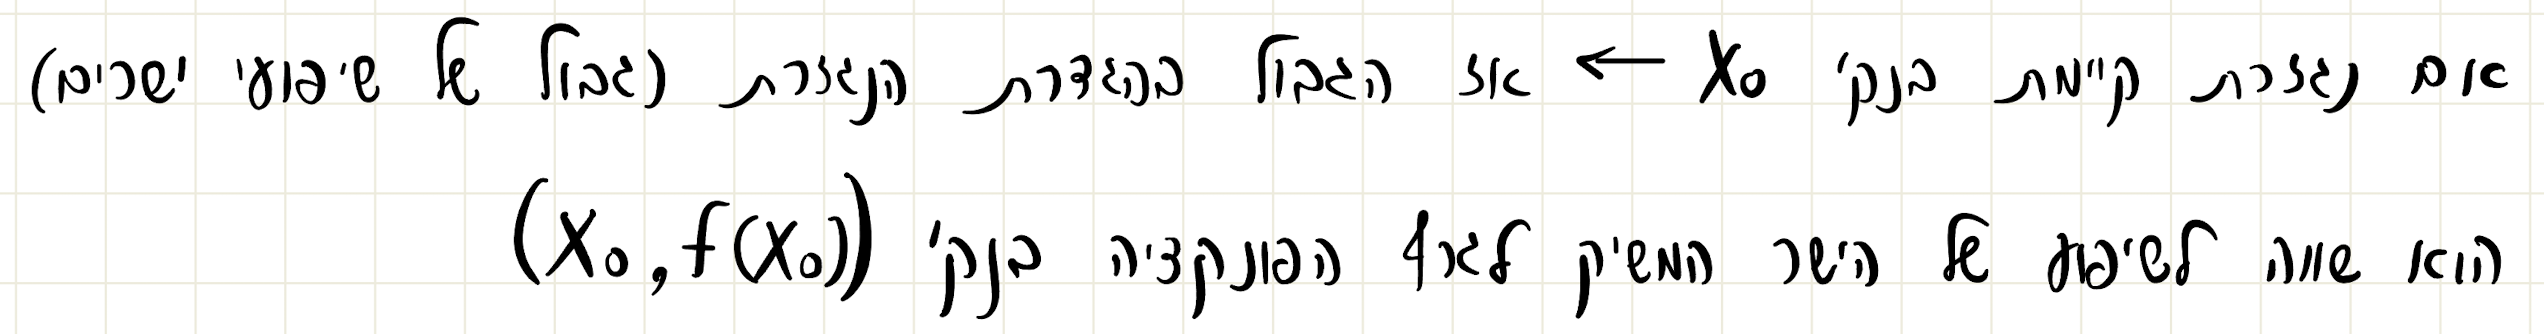 אם נגזרת קיימת בנק' X₀ ← אז הגבול בהגדרת הנגזרת (גבול של שיפועי ישרים)
הוא שווה לשיפוע של הישר המשיק לגרף הפונקציה בנק' (X₀, f(X₀))